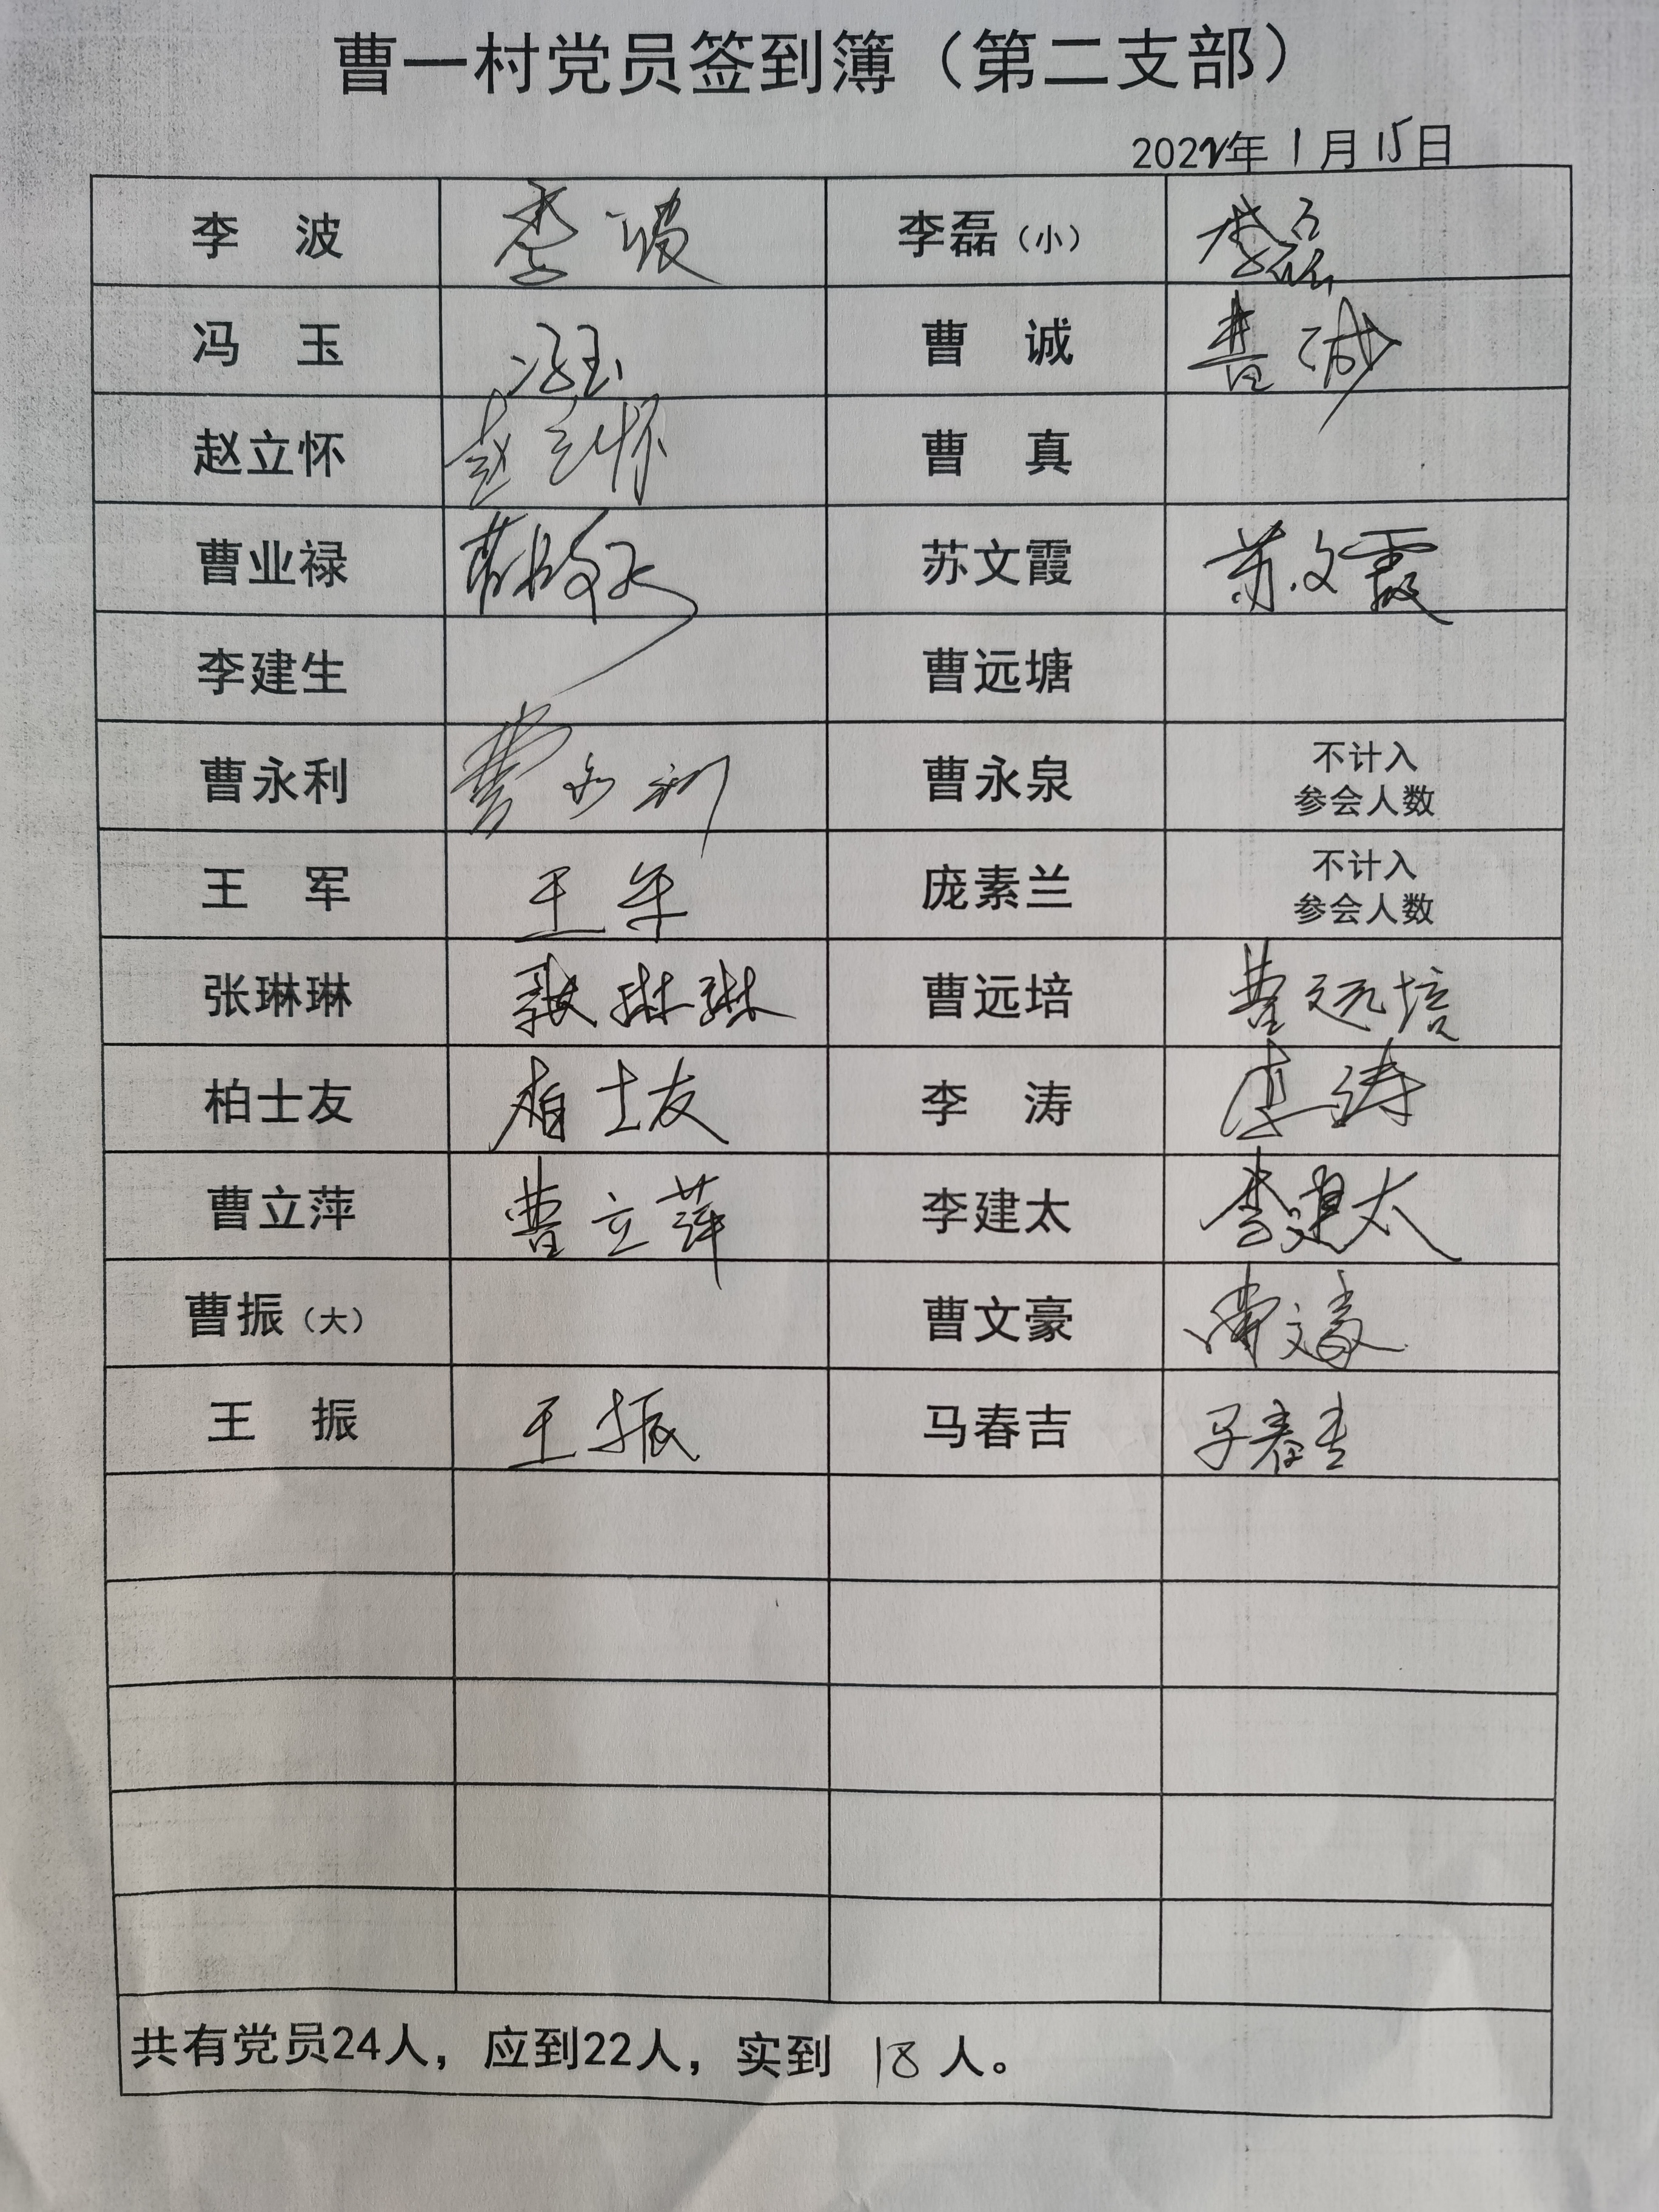 曹一村党员签到簿（第二支部）
2022年1月15日
李 波 李波 李磊（小） 李磊
冯 玉 冯玉 曹 诚 曹诚
赵立怀 赵立怀 曹 真
曹业禄 苏文霞 苏文霞
李建生 曹远塘
曹永利 曹永利 曹永泉 不计入
参会人数
王 军 王军 庞素兰 不计入
参会人数
张琳琳 张琳琳 曹远培 曹远培
柏士友 柏士友 李 涛 李涛
曹立萍 曹立萍 李建太 李建太
曹振（大） 曹文豪 曹文豪
王 振 王振 马春吉 马春吉
共有党员24人，应到22人，实到 18 人。